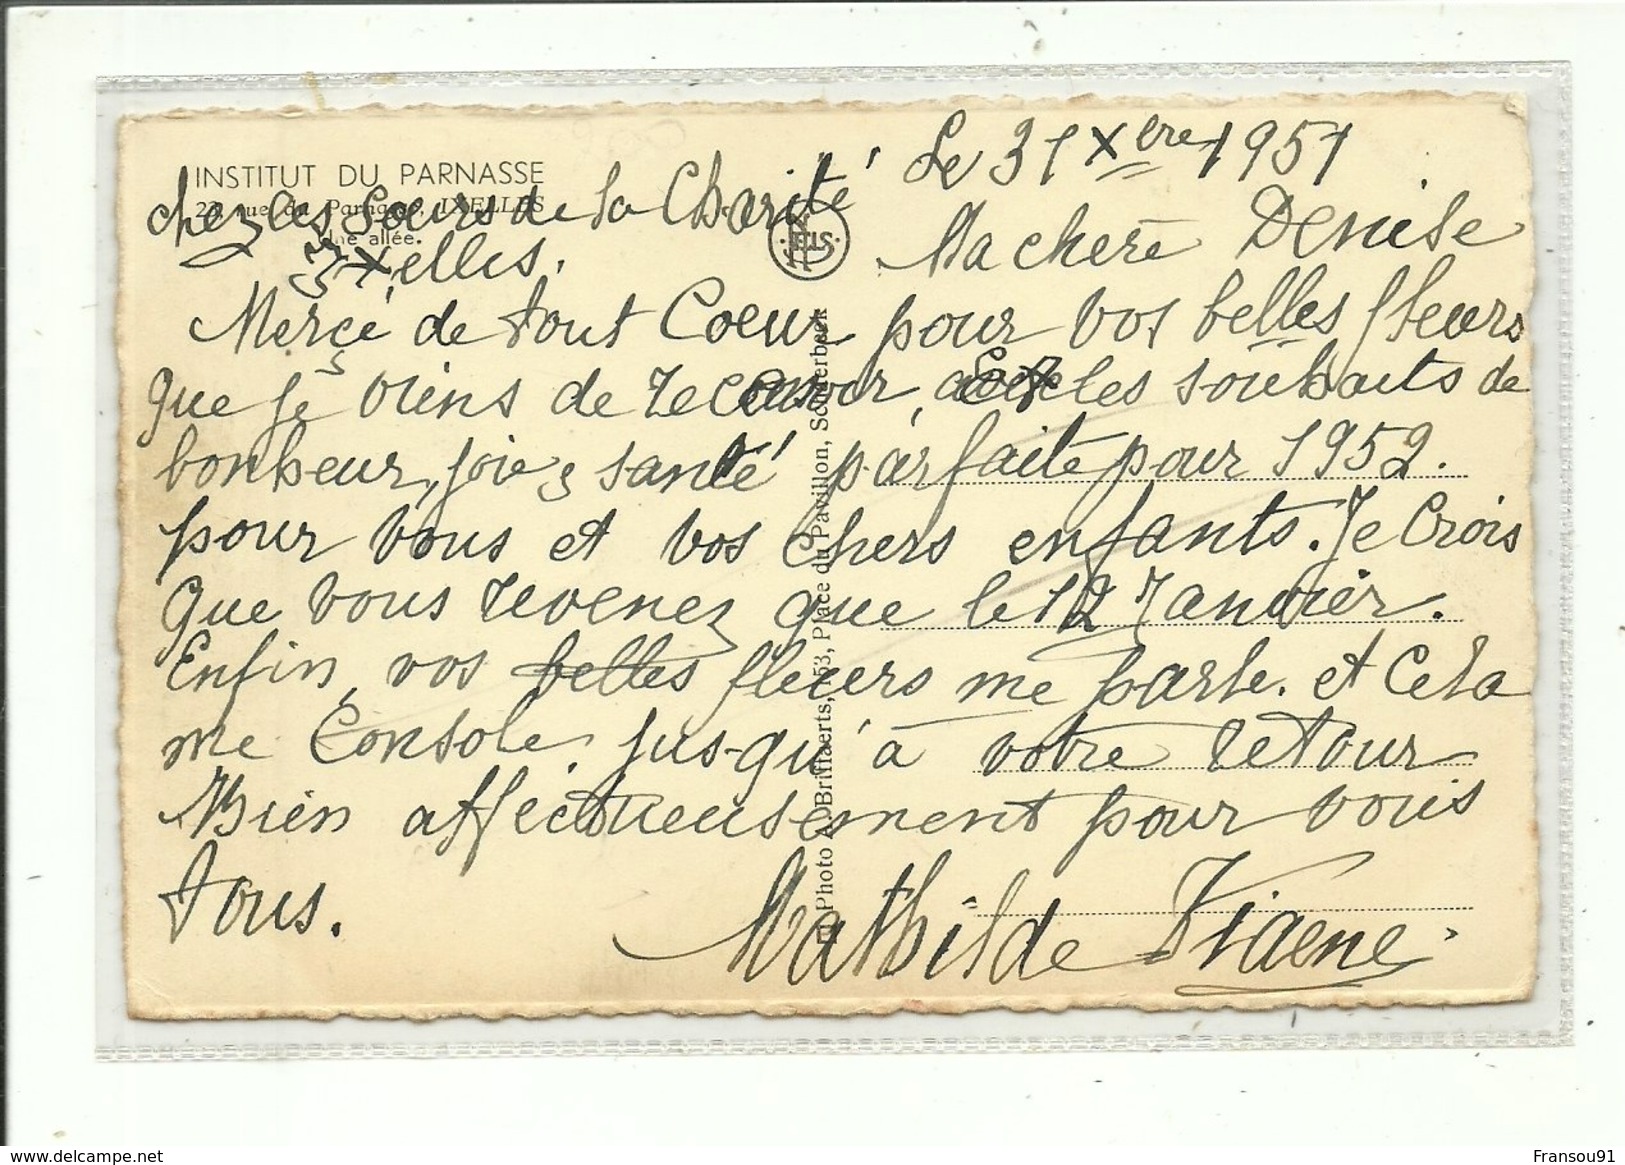 INSTITUT DU PARNASSE
IXELLES
Une allée.
chez les Soeurs de la Charité
Ixelles.
Le 31 Xbre 1951
Ma chère Denise
Merci de tout Coeur pour vos belles fleurs
que je viens de recevoir, les souhaits de
bonheur, joie, santé parfaite pour 1952.
pour vous et vos chers enfants. Je Crois
Que vous revenez que le 12 Janvier.
Enfin, vos belles fleurs me parle. et Cela
me Console. jusqu'à votre retour
Bien affectueusement pour vous
tous.
Mathilde Viaene
NELS
Photo A. Brihaerts, 153, Place du Pavillon, Schaerbeek
delcampe.net
Fransou91